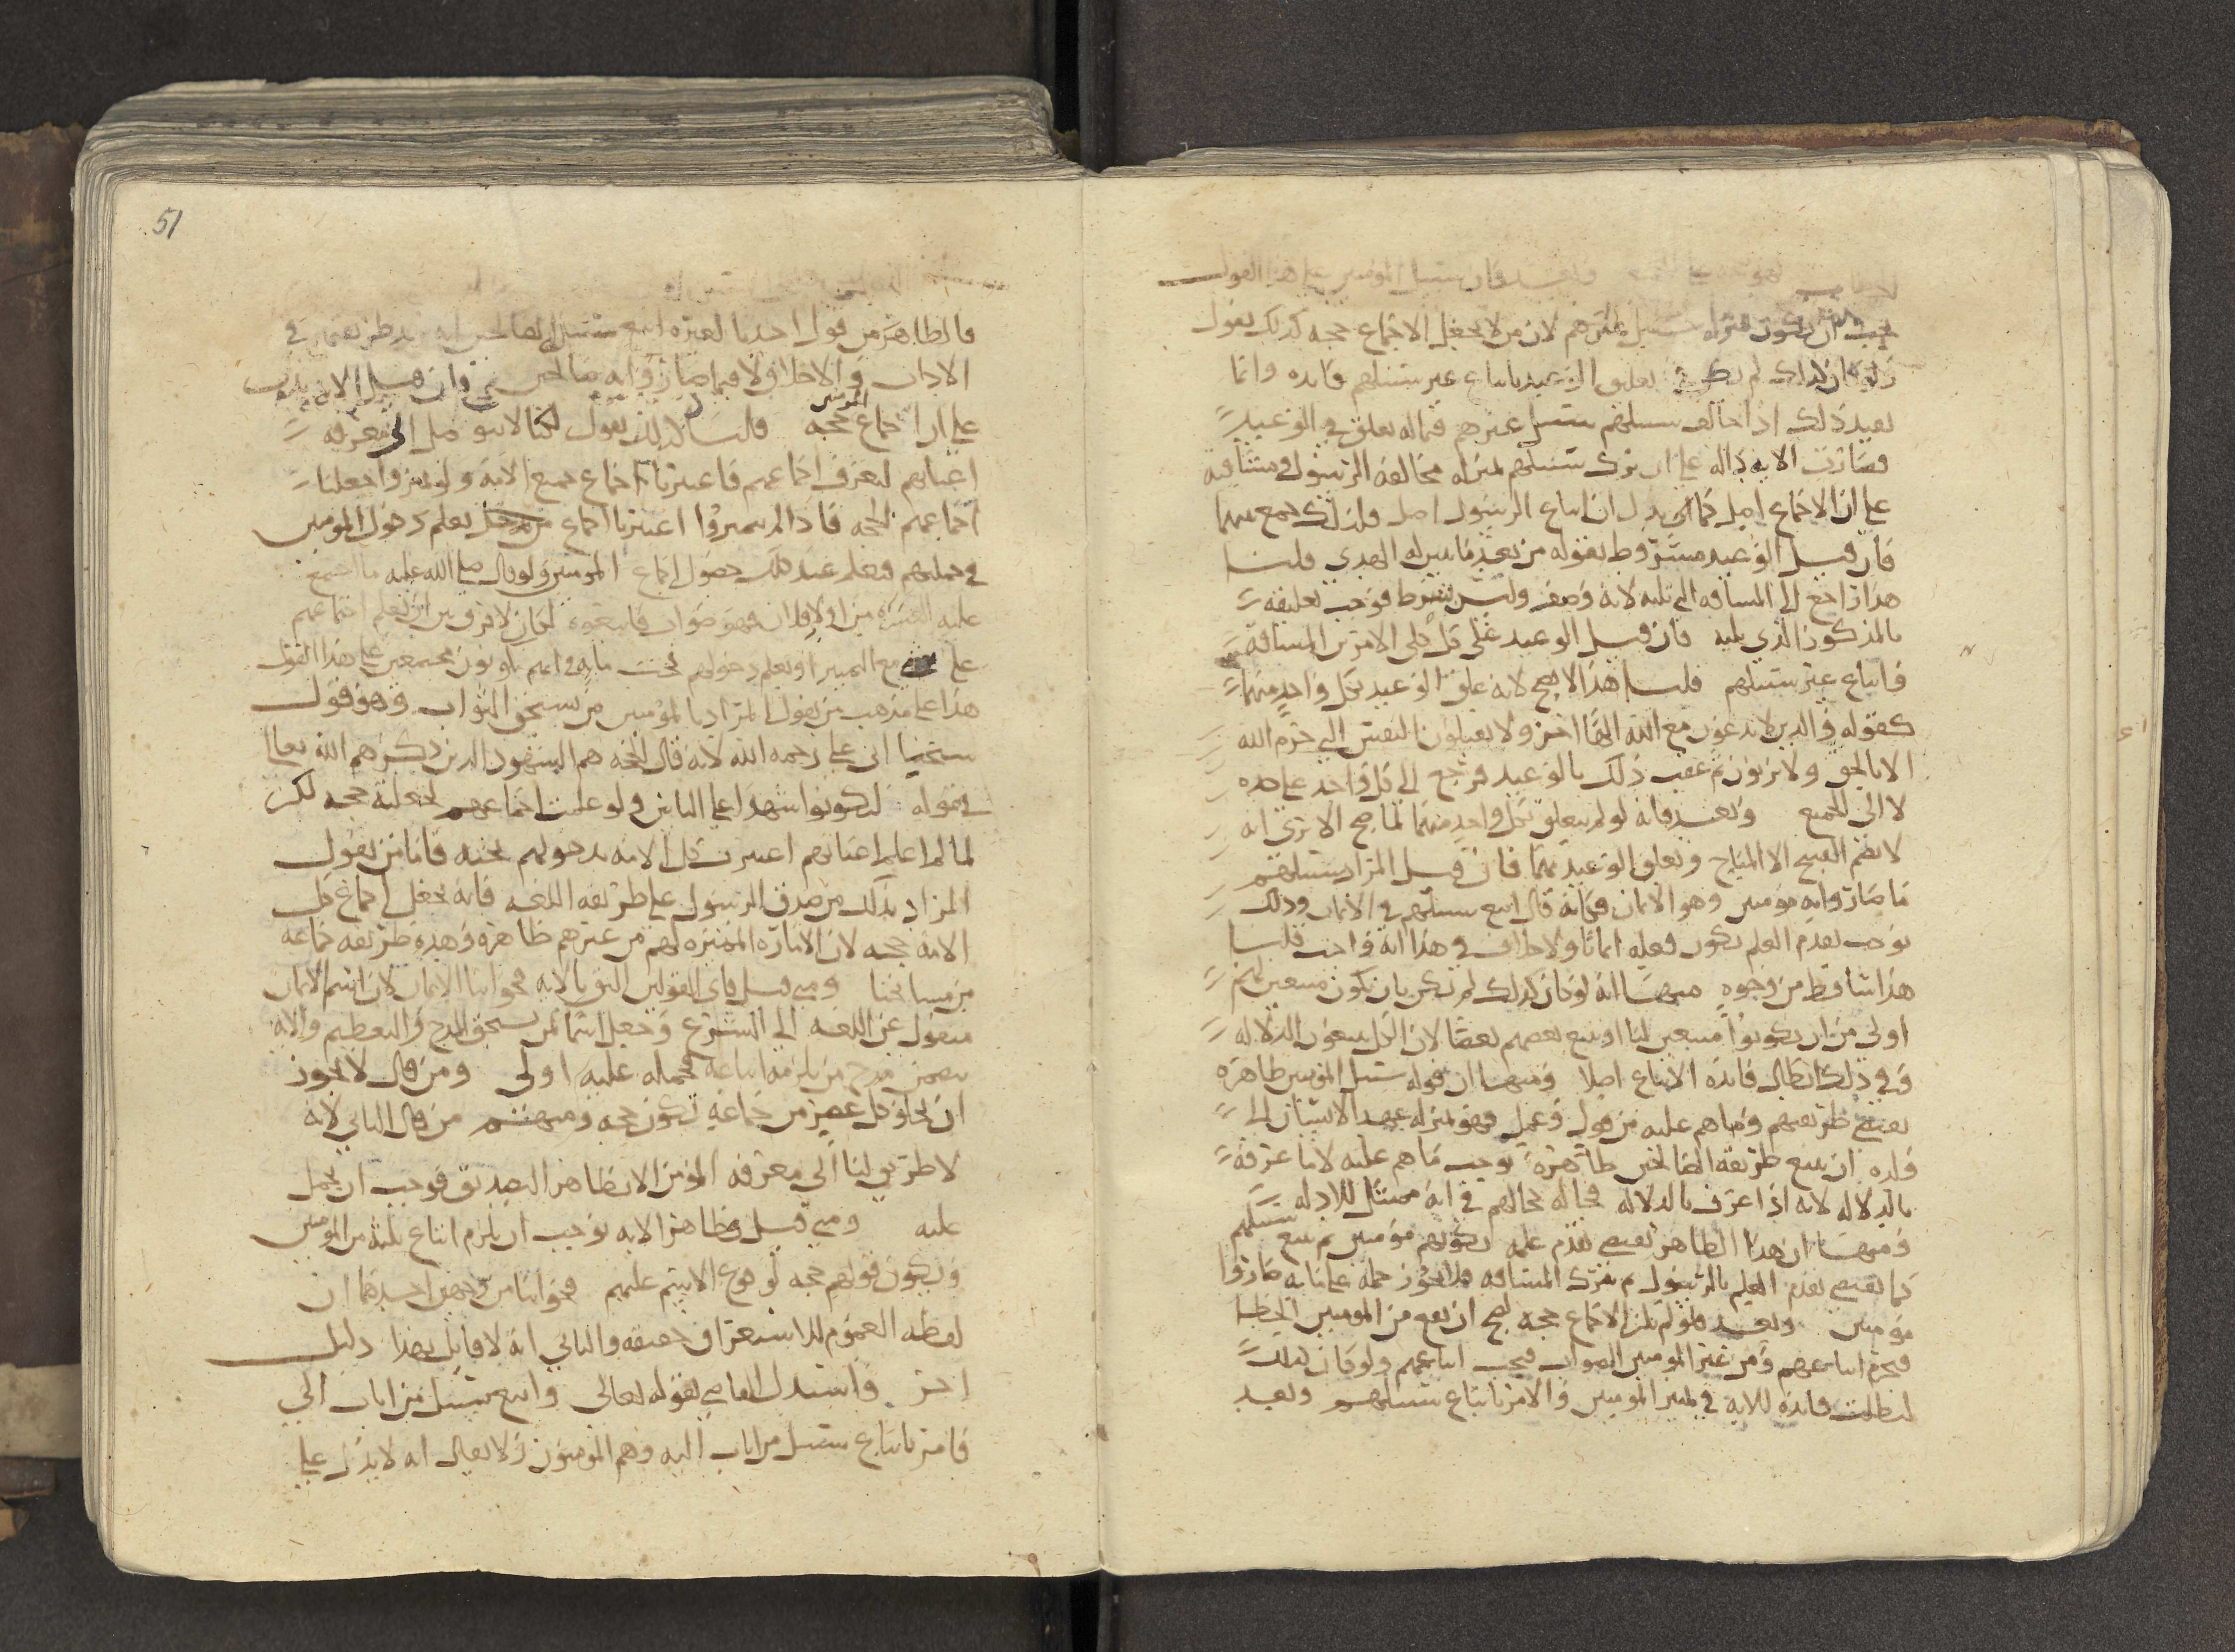 فان سبيل المومنين على هذا القول
يجب ان يكون سبيل غيرهم لان من لا يجعل الاجماع حجه كذلك يقول
ولو كان كذلك لم يكن في تعليق الوعيد باتباع غير سبيلهم فائده وانما
يفيد ذلك اذا خالف سبيلهم سبيل غيرهم فما له تعلق في الوعيد
فصارت الايه داله على ان ترك سبيلهم بمنزله مخالفه الرسول ومشاقته
على ان الاجماع اصل كما يدل ان اتباع الرسول اصل فلذلك جمع بينهما
فان قيل الوعيد مشروط بقوله من بعد ما تبين له الهدى قلنا
هذا راجع الى المشاقه التي تليه لانه وصف وليس بشرط فوجب تعليقه
بالمذكور الذي يليه فان قيل الوعيد على كل الامرين المشاقه
واتباع غير سبيلهم قلنا هذا لا يصح لانه علق الوعيد بكل واحد منهما
كقوله والذين لا يدعون مع الله الها اخر ولا يقتلون النفس التي حرم الله
الا بالحق ولا يزنون ثم عقب ذلك بالوعيد فرجع الى كل واحد على حده
لا الى الجميع وبعد فانه لو لم يتعلق بكل واحد منهما لما صح الا ترى انه
لا يضم القبيح الا المباح وتعلق الوعيد بهما فان قيل المراد سبيلهم
ما صاروا به مومنين وهو الايمان فكانه قال اتبع سبيلهم في الايمان وذلك
يوجب تقدم العلم بكون فعله ايمانا ولا خلاف في هذا انه واجب قلنا
هذا ساقط من وجوه منها انه لو كان كذلك لم نكن بان نكون متبعين لهم
اولى من ان يكونوا متبعين لنا او يتبع بعضهم بعضا لان الكل يتبعون الدلاله
وفي ذلك ابطال فائده الاتباع اصلا ومنها ان قوله سبيل المومنين ظاهره
يقتضي طريقتهم وما هم عليه من قول وعمل فهو بمنزله عهد الانسان الى
ولده ان يتبع طريقه الصالحين ظاهره يوجب ما هم عليه لا ما عرفه
بالدلاله لانه اذا عرف بالدلاله فحاله كحالهم في انه ممتثل للادله
ومنها ان هذا الظاهر يقتضي تقدم علمه بكونهم مومنين ثم يتبع سبيلهم
كما يقتضي تقدم العلم بالرسول ثم يترك المشاقه فلا يجوز حمله على ما به صاروا
مومنين وبعد فلو لم يكن الاجماع حجه لصح ان يقع من المومنين الخطا
فيحرم اتباعهم ومن غير المومنين الصواب فيجب اتباعهم ولو كان كذلك
لبطلت فائده الايه في تمييز المومنين والامر باتباع سبيلهم وبعد
51
فالظاهر من قول احدنا لغيره اتبع سبيل الصالحين انه يريد طريقتهم في
الاديان والاخلاق لا فيما صاروا به صالحين فان قيل الايه تدل
على ان اجماع المومنين حجه قلنا كذلك نقول لكنا لا نتوصل الى معرفه
اعيانهم لنعرف اجماعهم فاعتبرنا اجماع جميع الامه ولو تميزوا جعلنا
اجماعهم الحجه فاذا لم يتميزوا اعتبرنا اجماع من نعلم دخول المومنين
في جملتهم فنعلم عند ذلك حصول اجماع المومنين ولو قال صلى الله عليه ما اجتمع
عليه العشره من اولاد فلان فهو صواب فاتبعوه لكان لا فرق بين ان نعلم اجماعهم
على مع التمييز او نعلم دخولهم تحت مايه في انهم يكونون مجتمعين على هذا القول
هذا على مذهب من يقول المراد بالمومنين من يستحق الثواب وهو قول
شيخنا ابي علي رحمه الله لانه قال الحجه هم الشهود الذين ذكرهم الله تعالى
في قوله لتكونوا شهدا على الناس ولو علمت اجماعهم لجعلته حجه لكن
لما لم اعلم اعيانهم اعتبرت كل الامه بدخولهم تحته فاما من يقول
المراد بذلك من صدق الرسول على طريقه اللغه فانه يجعل اجماع كل
الامه حجه لان الاماره المميزه لهم من غيرهم ظاهره وهذه طريقه جماعه
من مشايخنا ومتى قيل فاي القولين اليق بالايه فجوابنا الايمان لان اسم الايمان
منقول عن اللغه الى الشرع وجعل اسما لمن يستحق المدح والتعظيم والايه
تتضمن مدح من يلزمه اتباعه فحمله عليه اولى ومن قال لا يجوز
ان يخلو كل عصر من جماعه تكون حجه ومنهم من قال الثاني لانه
لا طريق لنا الى معرفه المومن الا بظاهر التصديق فوجب ان يحمل
عليه ومتى قيل فظاهر الايه يوجب ان يلزم اتباع ثلثه من المومنين
ويكون قولهم حجه لوقوع الاسم عليهم فجوابنا من وجهين احدهما ان
لفظه العموم للاستغراق حقيقه والثاني انه لا قايل بهذا دليل
اخر واستدل القاضي بقوله تعالى واتبع سبيل من اناب الي
فامر باتباع سبيل من اناب اليه وهم المومنون ولا يقال انه لا يدل على